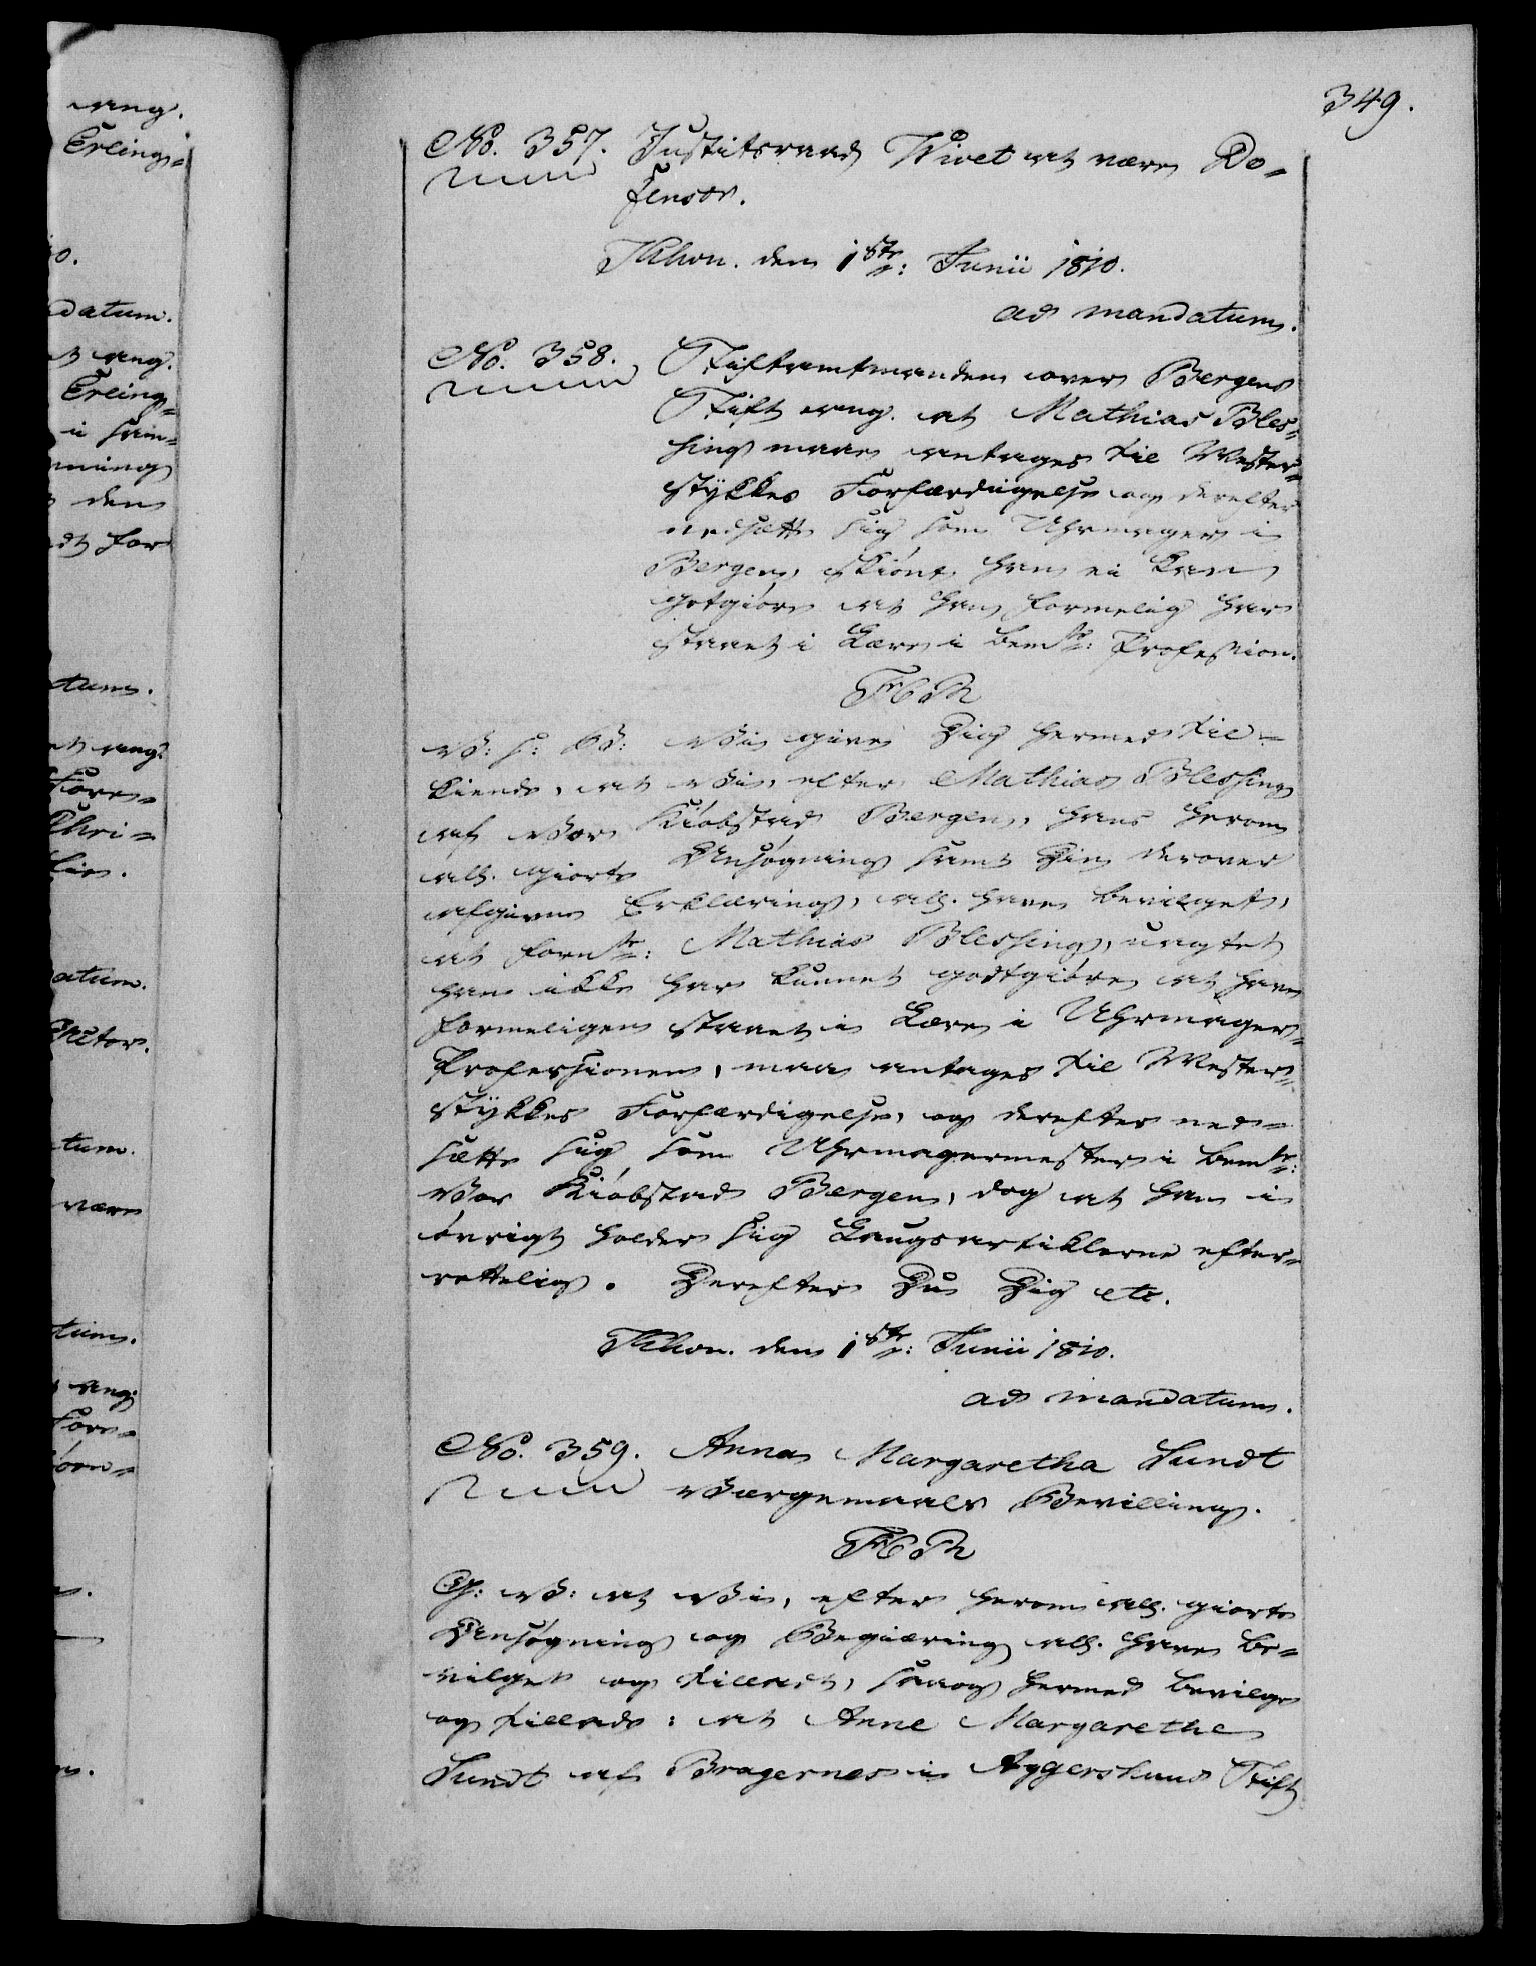 349.
No. 357. Justitsraad Wivet at være De-
fensor.
Khvn. den 1ste: Junii 1810.
ad mandatum.
No. 358. Stiftamtmanden over Bergens
Stift ang. at Mathias Bles-
sing maae antages til Mester-
stykkes Forfærdigelse og derefter
nedsætte sig som Uhrmager i
Bergen, skiønt han ei kan
gotgiøre at han formelig har
staaet i Lære i bemte: Profession.
F6R
V: s: G: Vi give Dig hermed til-
kiende, at Vi, efter Mathias Blessing
af Vor Kiøbstad Bergen, hans herom
all. giorte Ansøgning samt Din derover
afgivne Erklæring, all. have bevilget,
at fornte: Mathias Blessing, uagtet
han ikke har kunnet godtgiøre at have
formeligen staaet i Lære i Uhrmager-
Professionen, maa antages til Mester-
stykkes Forfærdigelse, og derefter ned-
sætte sig som Uhrmagermester i bemte:
Vor Kiøbstad Bergen, dog at han i
øvrigt holder sig Laugsartiklerne efter-
rettelig. Derefter Du Dig etc.
Khvn. den 1ste: Junii 1810.
ad mandatum.
No. 359. Anna Margaretha Sundt
Værgemaals Bevilling.
F6R
G: V: at Vi, efter herom all. giorte
Ansøgning og Begiæring all. have be-
vilget og tilladt, saaog hermed bevilge
og tillade: at Anne Margarethe
Sundt af Bragernes i Aggershuus Stift